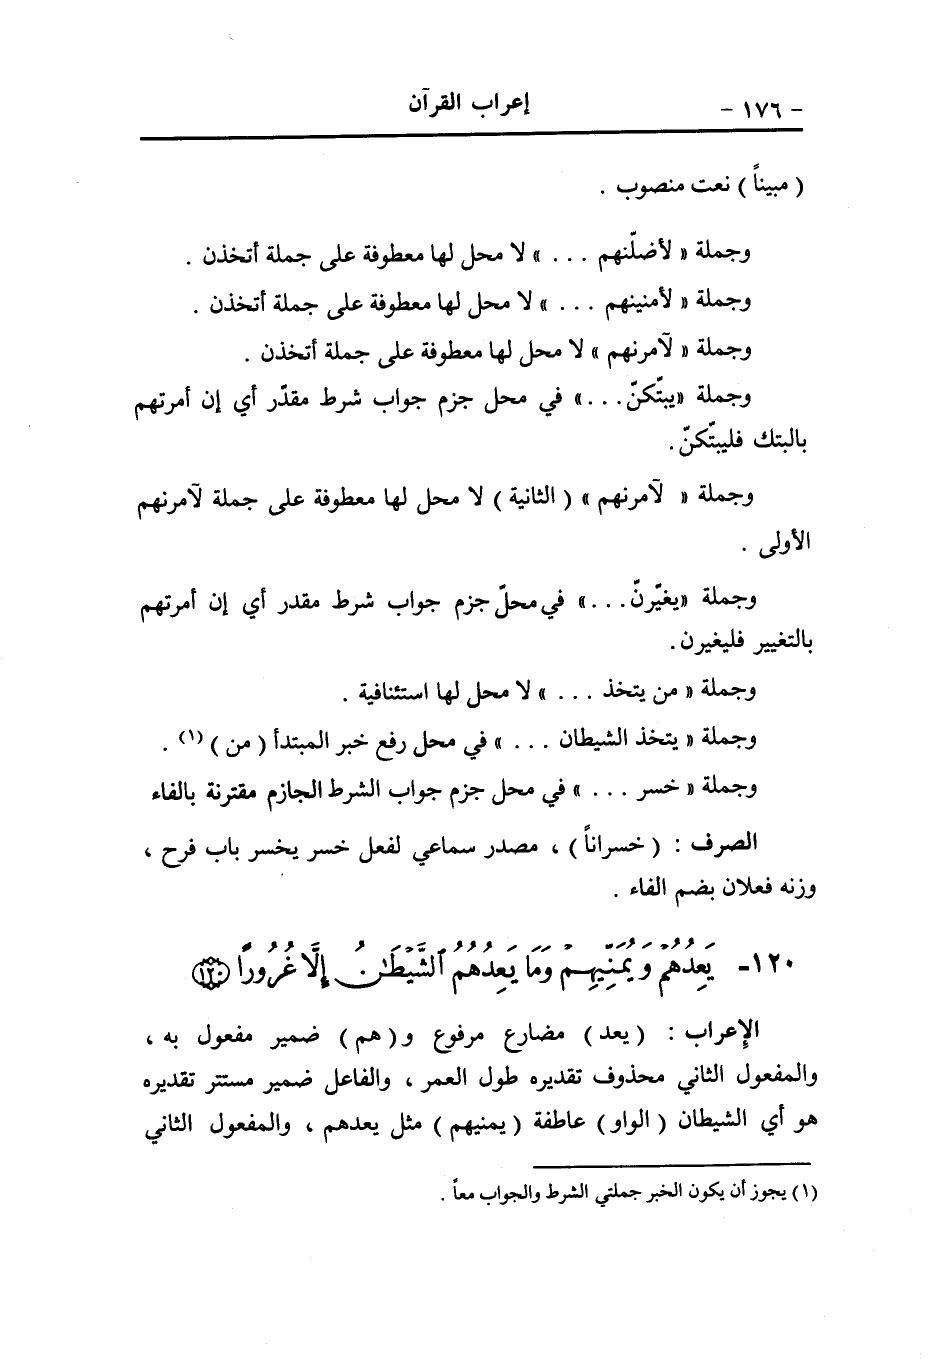 - ١٧٦ - إعراب القرآن
( مبيناً ) نعت منصوب .
وجملة « لأضلّنهم . . . » لا محل لها معطوفة على جملة أتخذن .
وجملة « لأمنينهم . . . » لا محل لها معطوفة على جملة أتخذن .
وجملة « لآمرنهم » لا محل لها معطوفة على جملة أتخذن .
وجملة «يبتّكنّ . . .» في محل جزم جواب شرط مقدّر أي إن أمرتهم
بالبتك فليبتّكنّ .
وجملة « لآمرنهم » ( الثانية ) لا محل لها معطوفة على جملة لآمرنهم
الأولى .
وجملة «يغيّرنّ . . .» في محلّ جزم جواب شرط مقدر أي إن أمرتهم
بالتغيير فليغيرن .
وجملة « من يتخذ . . . » لا محل لها استئنافية .
وجملة « يتخذ الشيطان . . . » في محل رفع خبر المبتدأ ( من ) (١) .
وجملة « خسر . . . » في محل جزم جواب الشرط الجازم مقترنة بالفاء
الصرف : ( خسراناً ) ، مصدر سماعي لفعل خسر يخسر باب فرح ،
وزنه فعلان بضم الفاء .
١٢٠- يَعِدُهُمْ وَيُمَنِّيهِمْ وَمَا يَعِدُهُمُ ٱلشَّيْطَـٰنُ إِلَّا غُرُورًا ﴿١٢٠﴾
الإعراب : ( يعد ) مضارع مرفوع و( هم ) ضمير مفعول به ،
والمفعول الثاني محذوف تقديره طول العمر ، والفاعل ضمير مستتر تقديره
هو أي الشيطان ( الواو ) عاطفة ( يمنيهم ) مثل يعدهم ، والمفعول الثاني
(١) يجوز أن يكون الخبر جملتي الشرط والجواب معاً .